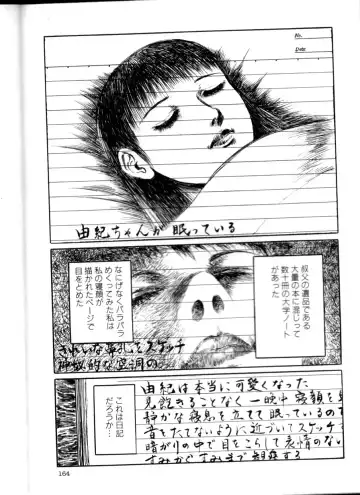 No.
Date
由紀ちゃんが 眠っている
叔父の遺品である
大量の本に混じって
数十冊の大学ノート
があった
なにげなくパラパラ
めくってみた私は
私の寝顔が
描かれたページで
目をとめた
きれいな鼻孔をスケッチ
神秘的な空洞の
これは日記
だろうか…
由紀は本当に可愛くなった
見飽きることなく一晩中寝顔を見
静かな寝息を立てて眠っているので
音をたてないように近づいてスケッチす
暗がりの中で目をこらして表情のない
すみからすみまで観察する
164